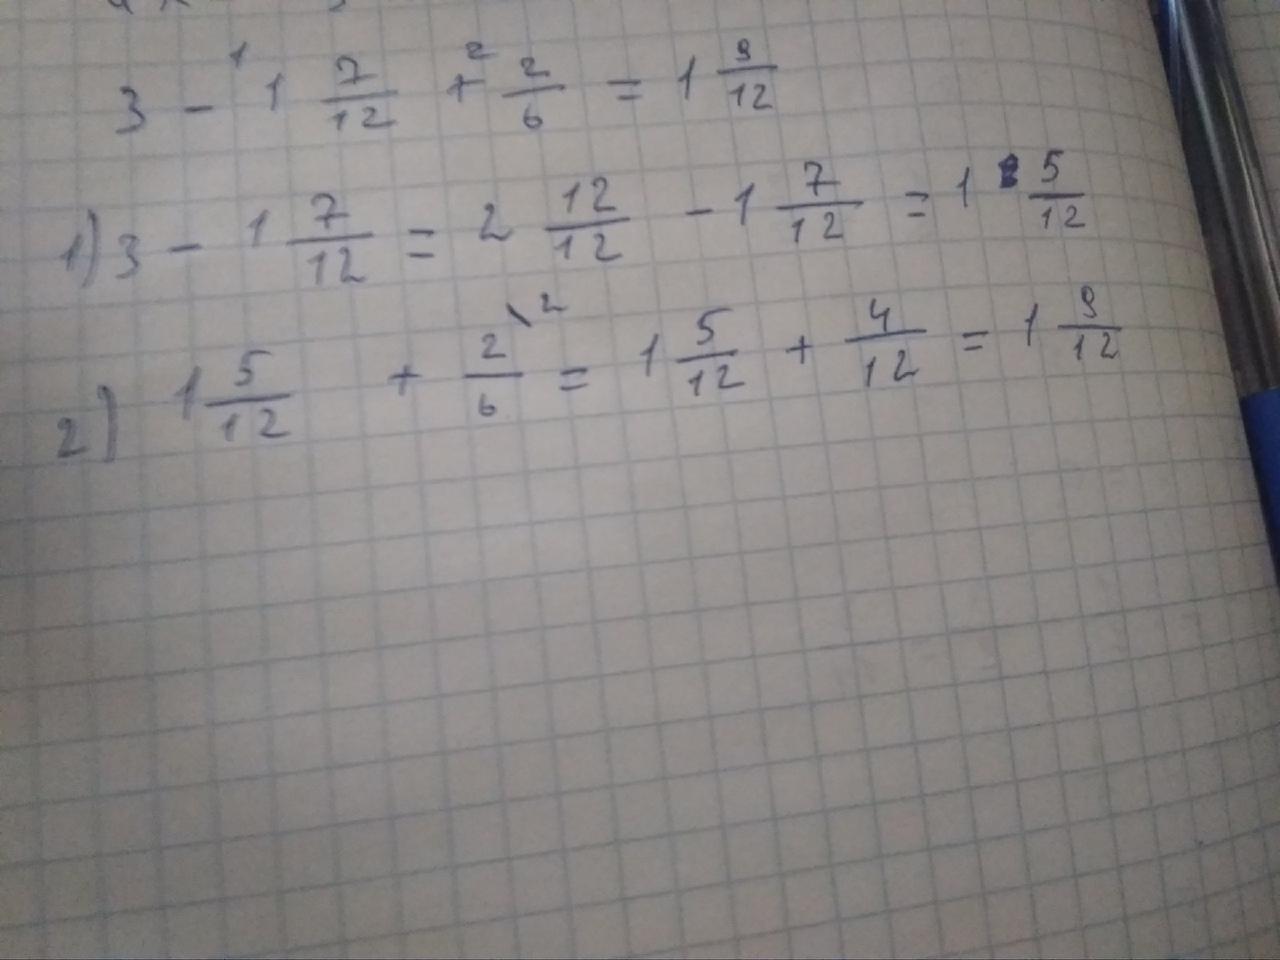 3 - 1 7/12 + 2/6 = 1 9/12
1) 3 - 1 7/12 = 2 12/12 - 1 7/12 = 1 5/12
2) 1 5/12 + 2\2/6 = 1 5/12 + 4/12 = 1 9/12